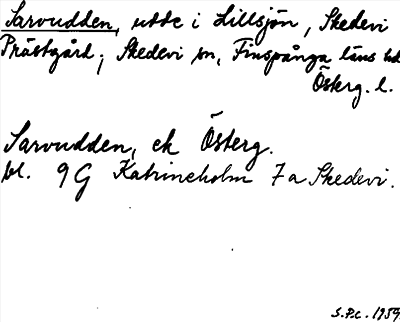 Sarvudden, udde i Lillsjön, Skedevi
Prästgård; Skedevi sn, Finspånga läns hd
Österg. l.
Sarvudden, ek Österg.
bl. 9G Katrineholm 7a Skedevi.
S.P.C. 1959